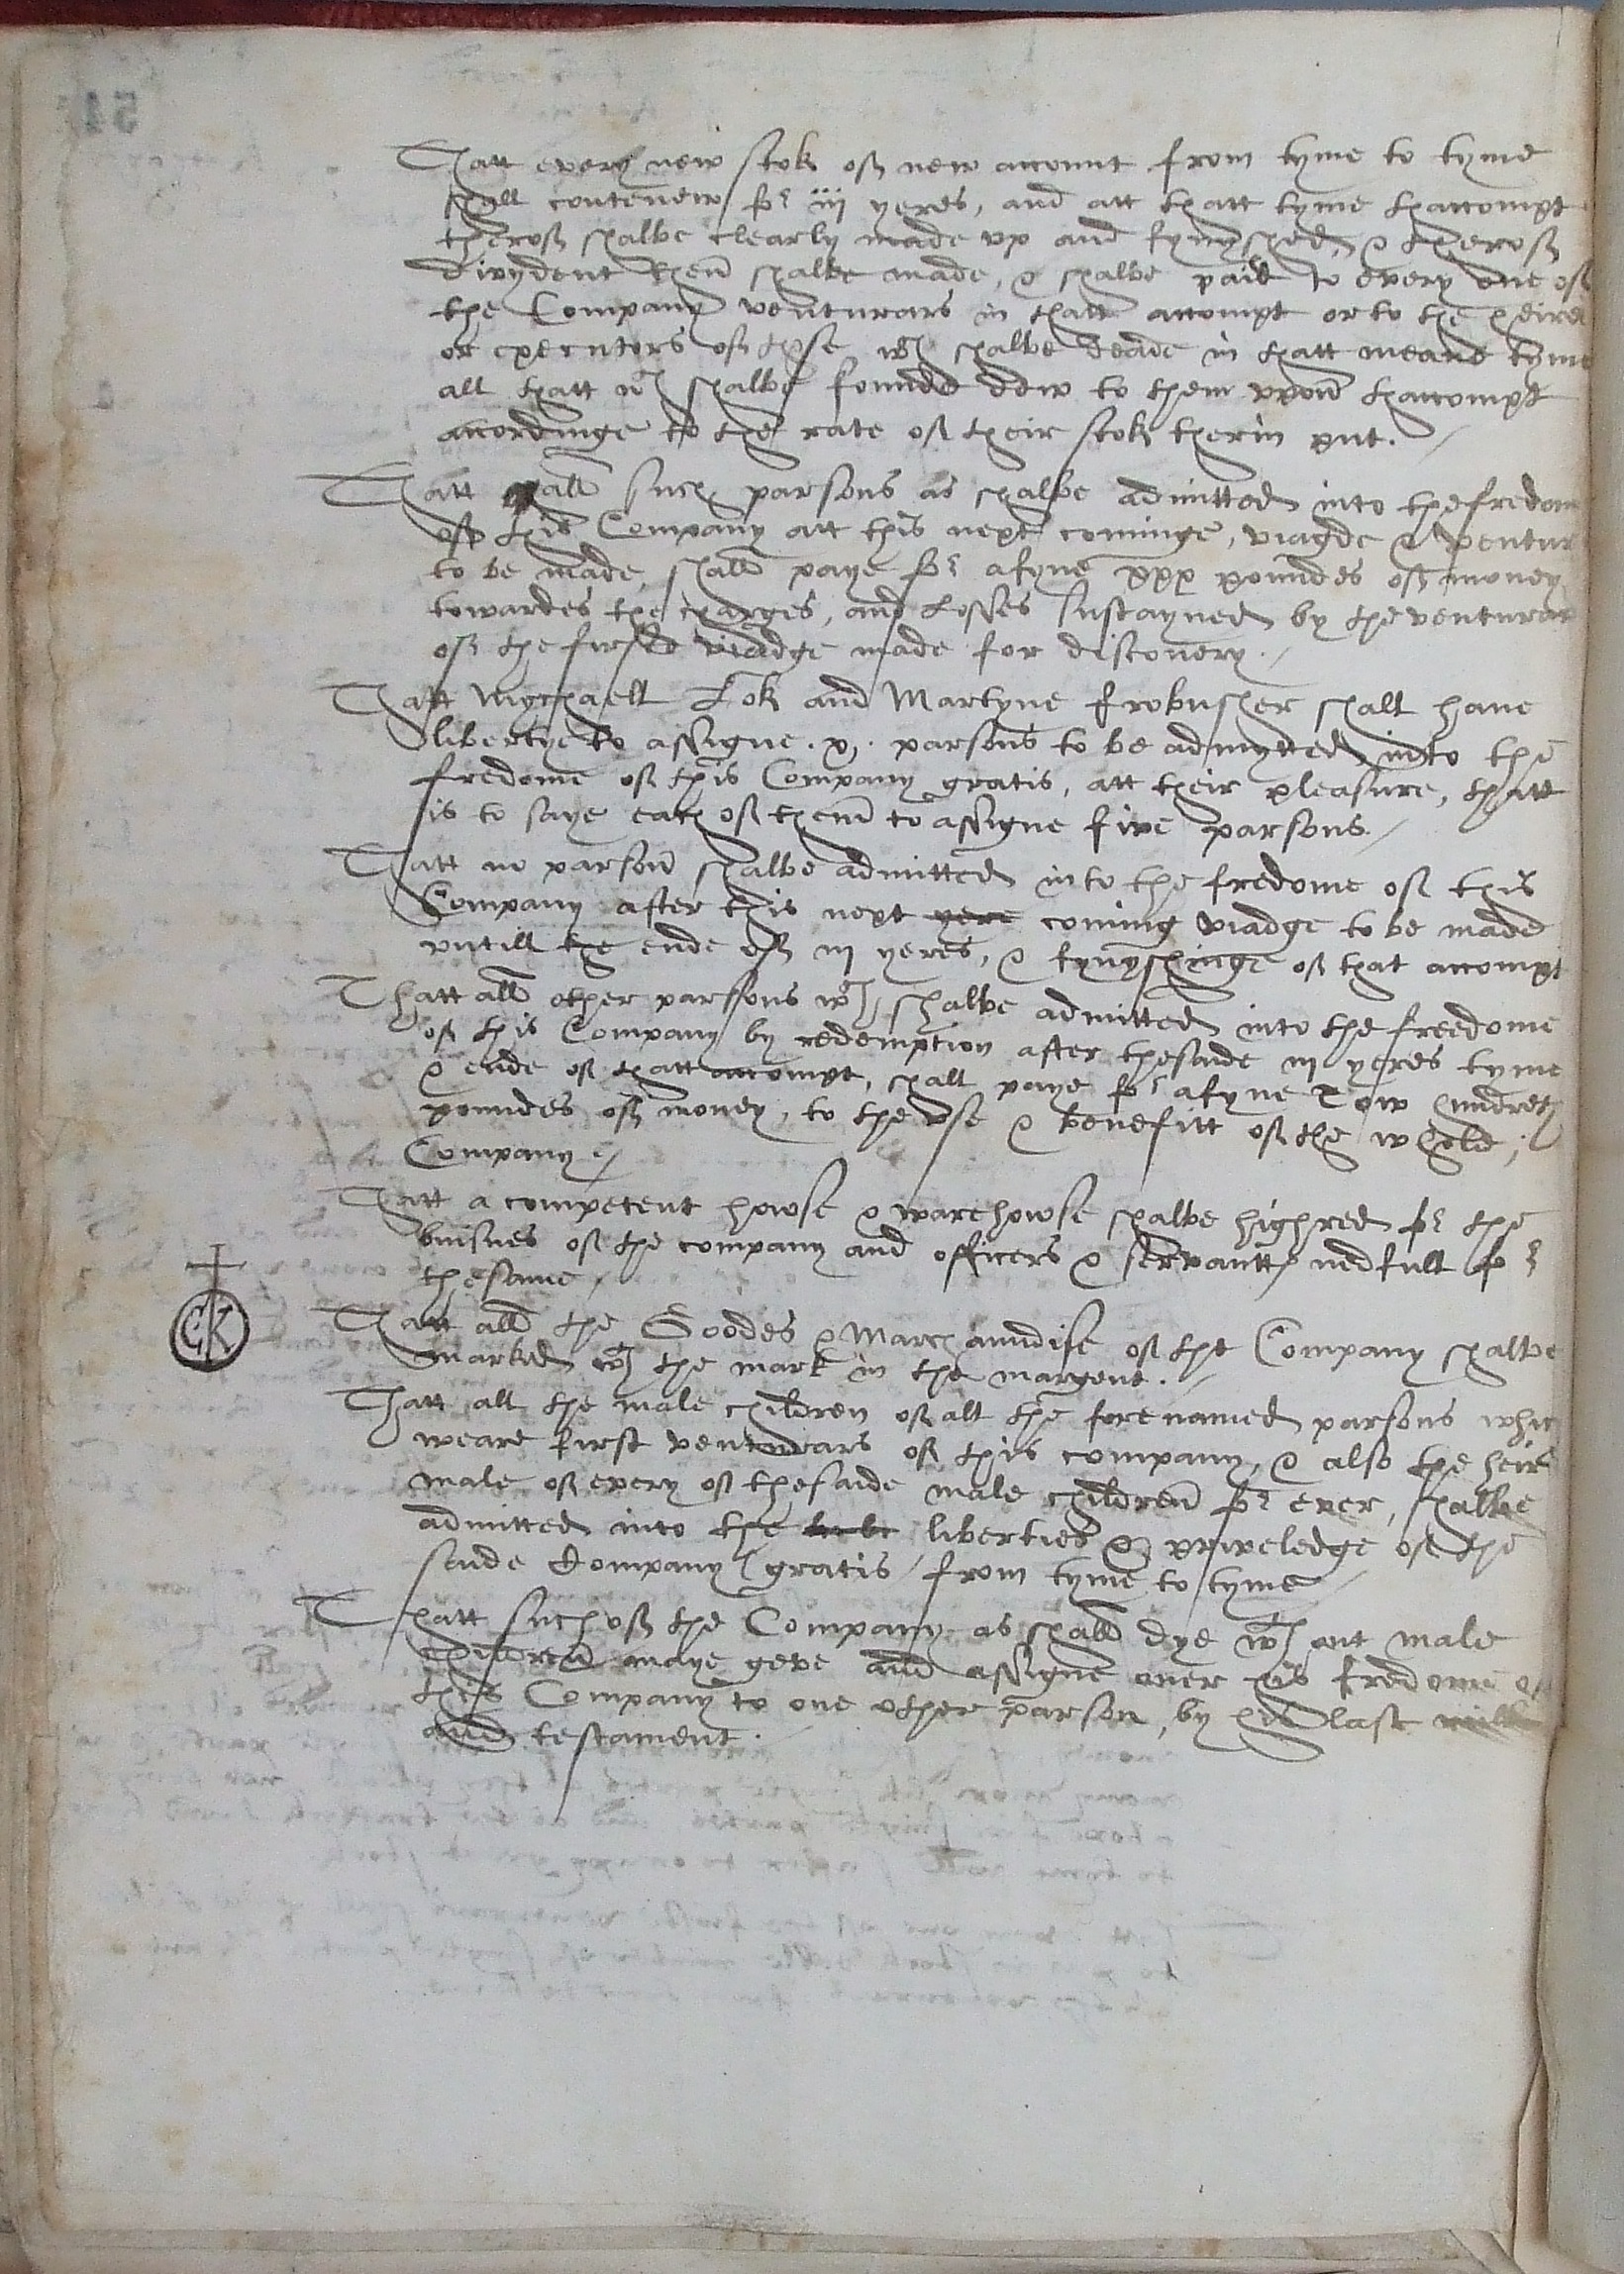 Thatt every new stok off new account from tyme to tyme
shall contenew for iij yeres, and att thatt tyme thaccompt
theroff shalbe clearly made vp and fynyshed, & theroff
divydent then shalbe made, & shalbe paid to every one off
the Company venturars in thatt accompt or to the heires
or executors off those wch shalbe deade in thatt meane tyme
all thatt wch shalbe founde dew to them vppon thaccompt
accordinge to the rate off their stok therin put.
Thatt all such parsons as shalbe admitted into the fredom
off this Company att this next cominge, viagde & ventur
to be made, shall paye for a fyne xxx poundes off money
towardes the charges, and Losses sustayned by the venturars
off the firste viadge made for discouery.
Thatt Mychaell Lok and Martyne frobusher shall haue
libertye to assigne .x. parsons to be admytted into the
fredome off this Company gratis, att their pleasure, thatt
is to saye each off them to assigne five parsons.
Thatt no parson shalbe admitted into the fredome off this
Company after this next yere coming viadge to be made
vntill the ende off iij yeres, & fynyshinge off that accompt
Thatt all other parsons wch shalbe admitted into the freedome
off this Company by redemption after thesaide iij yeres tyme
& ende off thatt accompt, shall paye for a fyne Tow hundreth
poundes off money, to the vse & benefitt off the whole
Company.
Thatt a competent howse & warehowse shalbe highred for the
buisnes off the company and officers & servantes nedfull for
thesame.
CK
Thatt all the Goodes & Marchaundise off the Company shalbe
marked wth the mark in the margent.
Thatt all the male children off all the forenamed parsons which
weare first venturars off this company, & also the heires
male off every off thesaide male children for ever, shalbe
admitted into the liberties & pryveledge off the
saide Company gratis from tyme to tyme
Thatt such off the Company as shall dye wth out male
children maye geve and assigne over his fredome off
this Company to one other parson, by his last will
and testament.